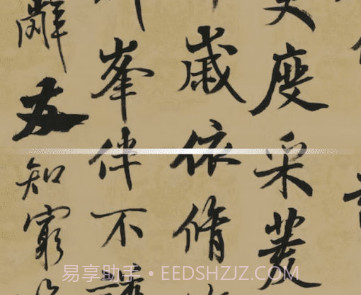 更度采菱
歲依脩
峯伴不
辭友知窮
易享助手 · EEDSHZJZ.COM